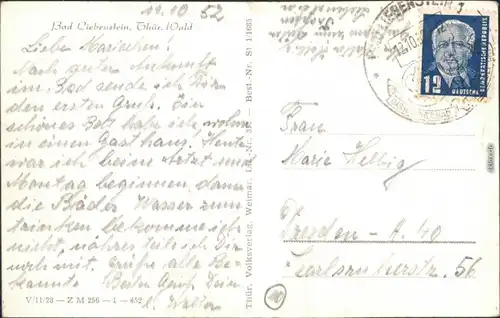 11.10.52
Bad Liebenstein, Thür. Wald
Liebe Mariechen!
Nach guter Ankunft
im Bad sende ich Dir
den ersten Gruß. Ein
schönes Bett habe ich, wohne
in einem Gasthaus. Heute
war ich beim Arzt und
Montag beginnen dann
die Bäder. Wasser zum
trinken bekomme ich
nicht, nähres teile ich Dir
noch mit. Grüße alle Be-
kannte. Gruß Dein
Walter
V/11/28 - Z M 256 - 1 - 452
Thür. Volksverlag, Weimar, Best.-Nr. S1 1/1051
BAD LIEBENSTEIN
12
DEUTSCHE
DEMOKRATISCHE REPUBLIK
Frau
Marie Helbig
Dresden - A. 40
56